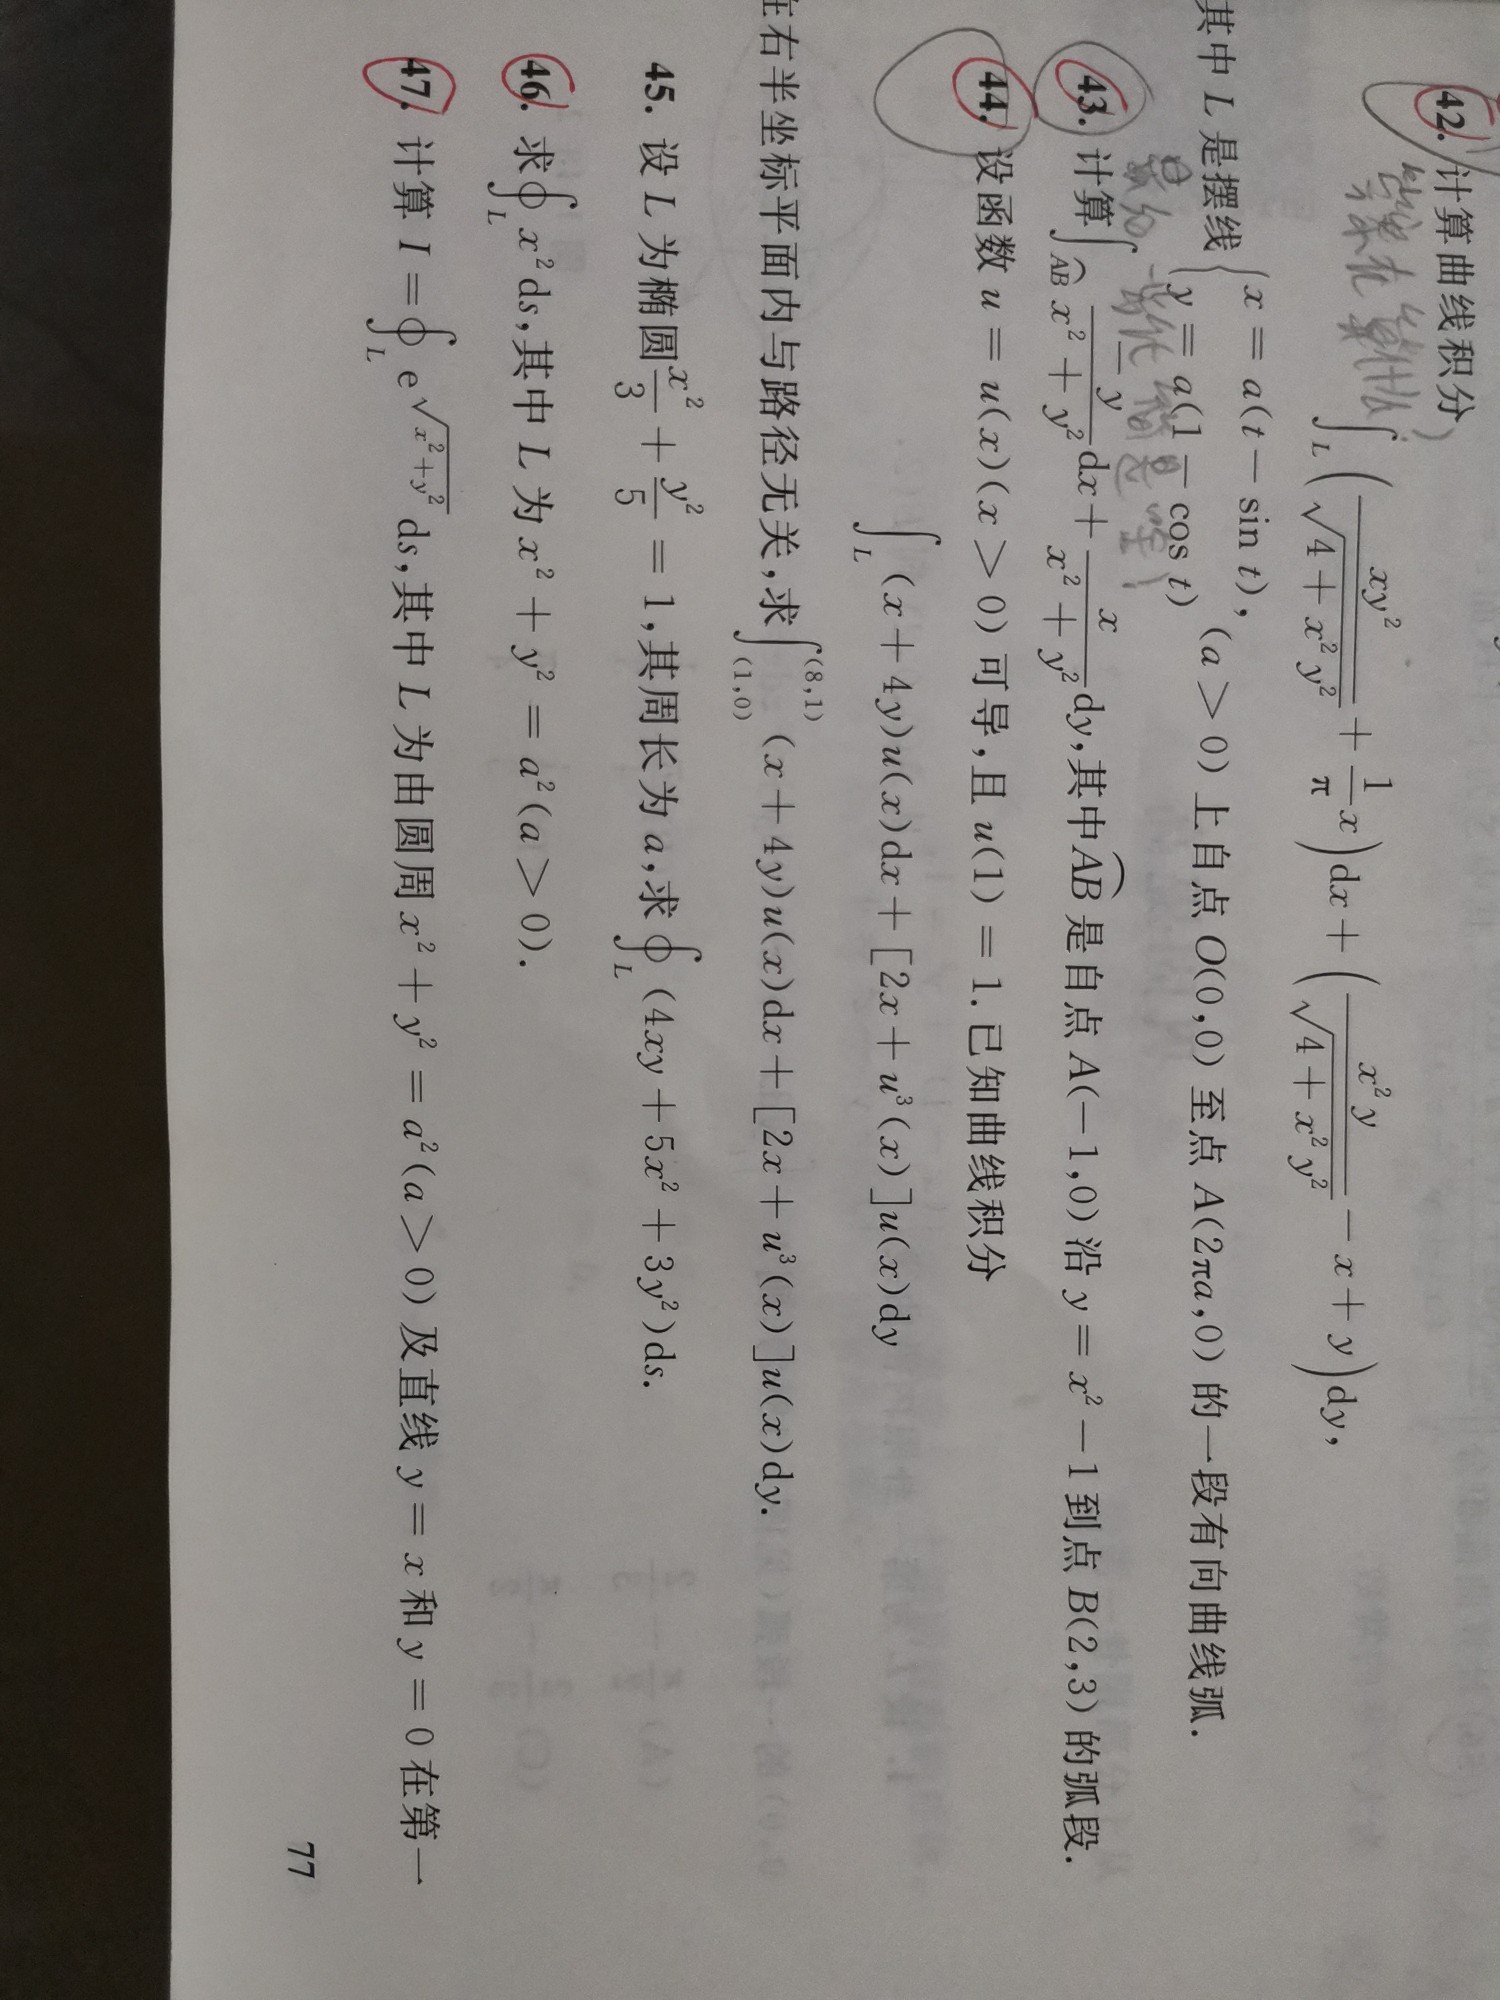 42. 计算曲线积分
∫_L (xy²/√(4+x²y²) + 1/π x)dx + (x²y/√(4+x²y²) − x + y)dy,
其中 L 是摆线 { x = a(t − sin t), y = a(1 − cos t) (a > 0) 上自点 O(0,0) 至点 A(2πa,0) 的一段有向曲线弧.
43. 计算∫_{\overset{\frown}{AB}} −y/(x² + y²) dx + x/(x² + y²) dy,其中\overset{\frown}{AB} 是自点 A(−1,0) 沿 y = x² − 1 到点 B(2,3) 的弧段.
44. 设函数 u = u(x)(x > 0) 可导,且 u(1) = 1. 已知曲线积分
∫_L (x + 4y)u(x)dx + [2x + u³(x)]u(x)dy
在右半坐标平面内与路径无关,求∫_{(1,0)}^{(8,1)} (x + 4y)u(x)dx + [2x + u³(x)]u(x)dy.
45. 设 L 为椭圆 x²/3 + y²/5 = 1,其周长为 a,求∮_L (4xy + 5x² + 3y²)ds.
46. 求∮_L x²ds,其中 L 为 x² + y² = a²(a > 0).
47. 计算 I = ∮_L e^{√(x²+y²)} ds,其中 L 为由圆周 x² + y² = a²(a > 0) 及直线 y = x 和 y = 0 在第一
77